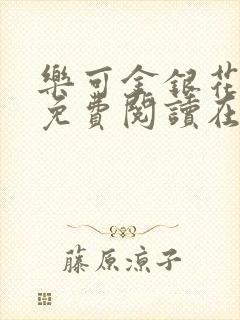 樂可金銀花
免費閱讀在
藤原涼子